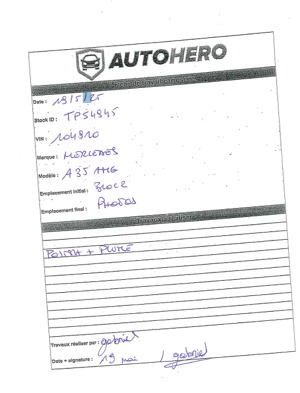 AUTOHERO
Date : 19/5/25
Stock ID : TP54845
VIN : 104910
Marque : MERCEDES
Modèle : A35 AMG
Emplacement initial : BLOC 2
Emplacement final : PHOTOS
POLISH + PLUME
Travaux réaliser par : gabriel
Date + signature : 19 mai / gabriel